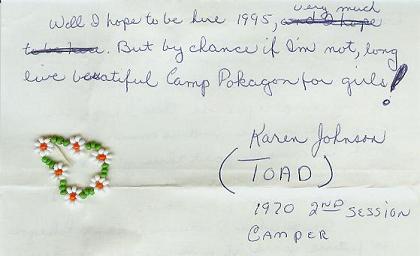 very much
Well I hope to be here 1995, and I hope
to be here. But by chance if I'm not, long
live beautiful Camp Pokagon for girls!
Karen Johnson
(TOAD)
1970 2ND SESSION
CAMPER